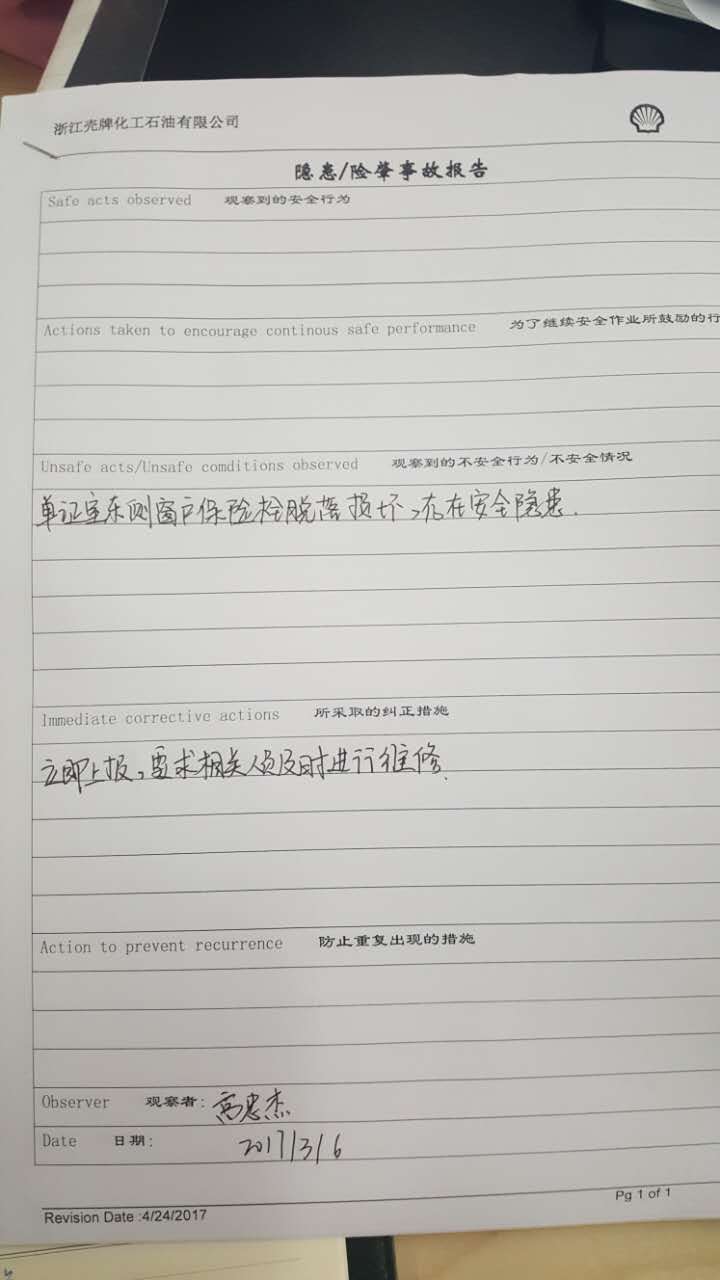 浙江壳牌化工石油有限公司
隐患/险肇事故报告
Safe acts observed 观察到的安全行为
Actions taken to encourage continous safe performance 为了继续安全作业所鼓励的行
Unsafe acts/Unsafe comditions observed 观察到的不安全行为/不安全情况
单证室东侧窗户保险栓脱落损坏,存在安全隐患.
Immediate corrective actions 所采取的纠正措施
立即上报,要求相关人员及时进行维修.
Action to prevent recurrence 防止重复出现的措施
Observer 观察者: 高忠杰
Date 日期: 2017/3/6
Pg 1 of 1
Revision Date :4/24/2017